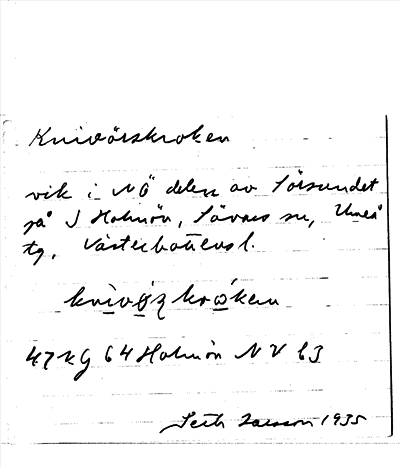 Knivörskroken
vik i NÖ delen av Sörsundet
på S Holmön, Sävars sn, Umeå
tg, Västerbottens l.
knìvǿʐ krωˊken
47 kg 64 Holmön NV b3
Seth Larsson 1935